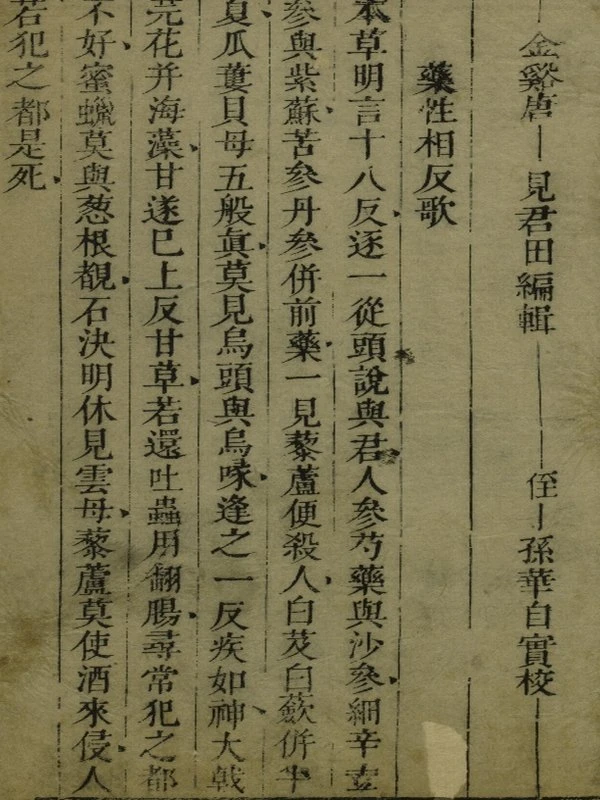 金谿唐 見君田編輯 侄 孫華自實校
藥性相反歌
本草明言十八反逐一從頭說與君人參芍藥與沙參細辛壹
參與紫蘇苦參丹參併前藥一見藜蘆便殺人白芨白蘞併半
夏瓜蔞貝母五般眞莫見烏頭與烏喙逢之一反疾如神大戟
芫花并海藻甘遂巳上反甘草若還吐蟲用翻腸尋常犯之都
不好蜜蠟莫與葱根覩石決明休見雲母藜蘆莫使酒來侵人
若犯之都是死